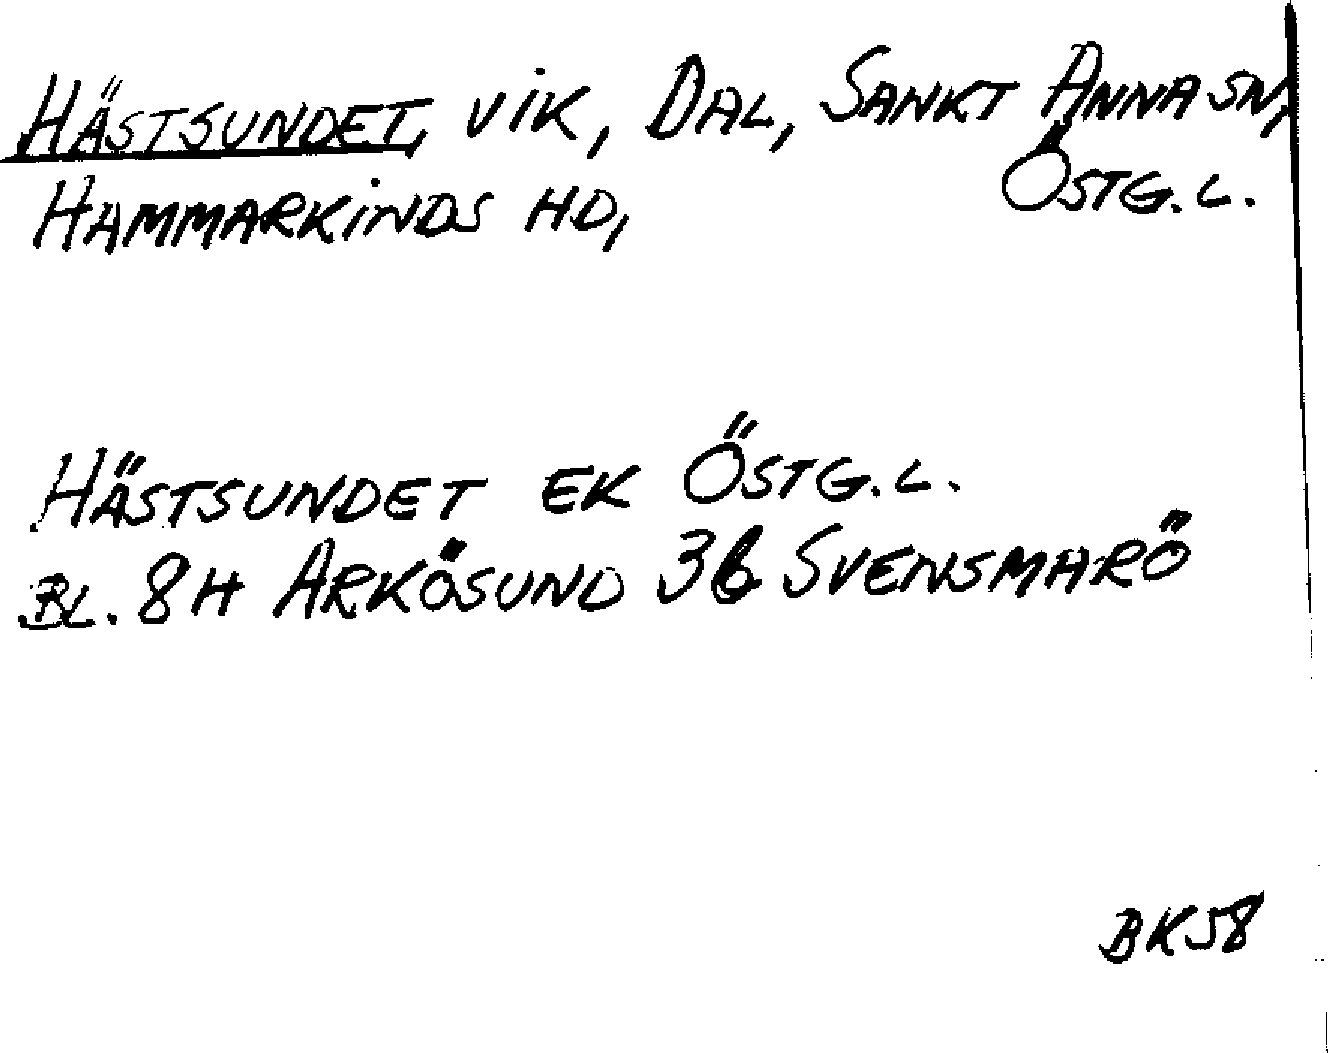 HÄSTSUNDET, VIK, DAL, SANKT ANNA SN,
HAMMARKINDS HD, ÖSTG.L.
HÄSTSUNDET EK ÖSTG.L.
BL. 8H ARKÖSUND 3b SVENSMARÖ
BK58